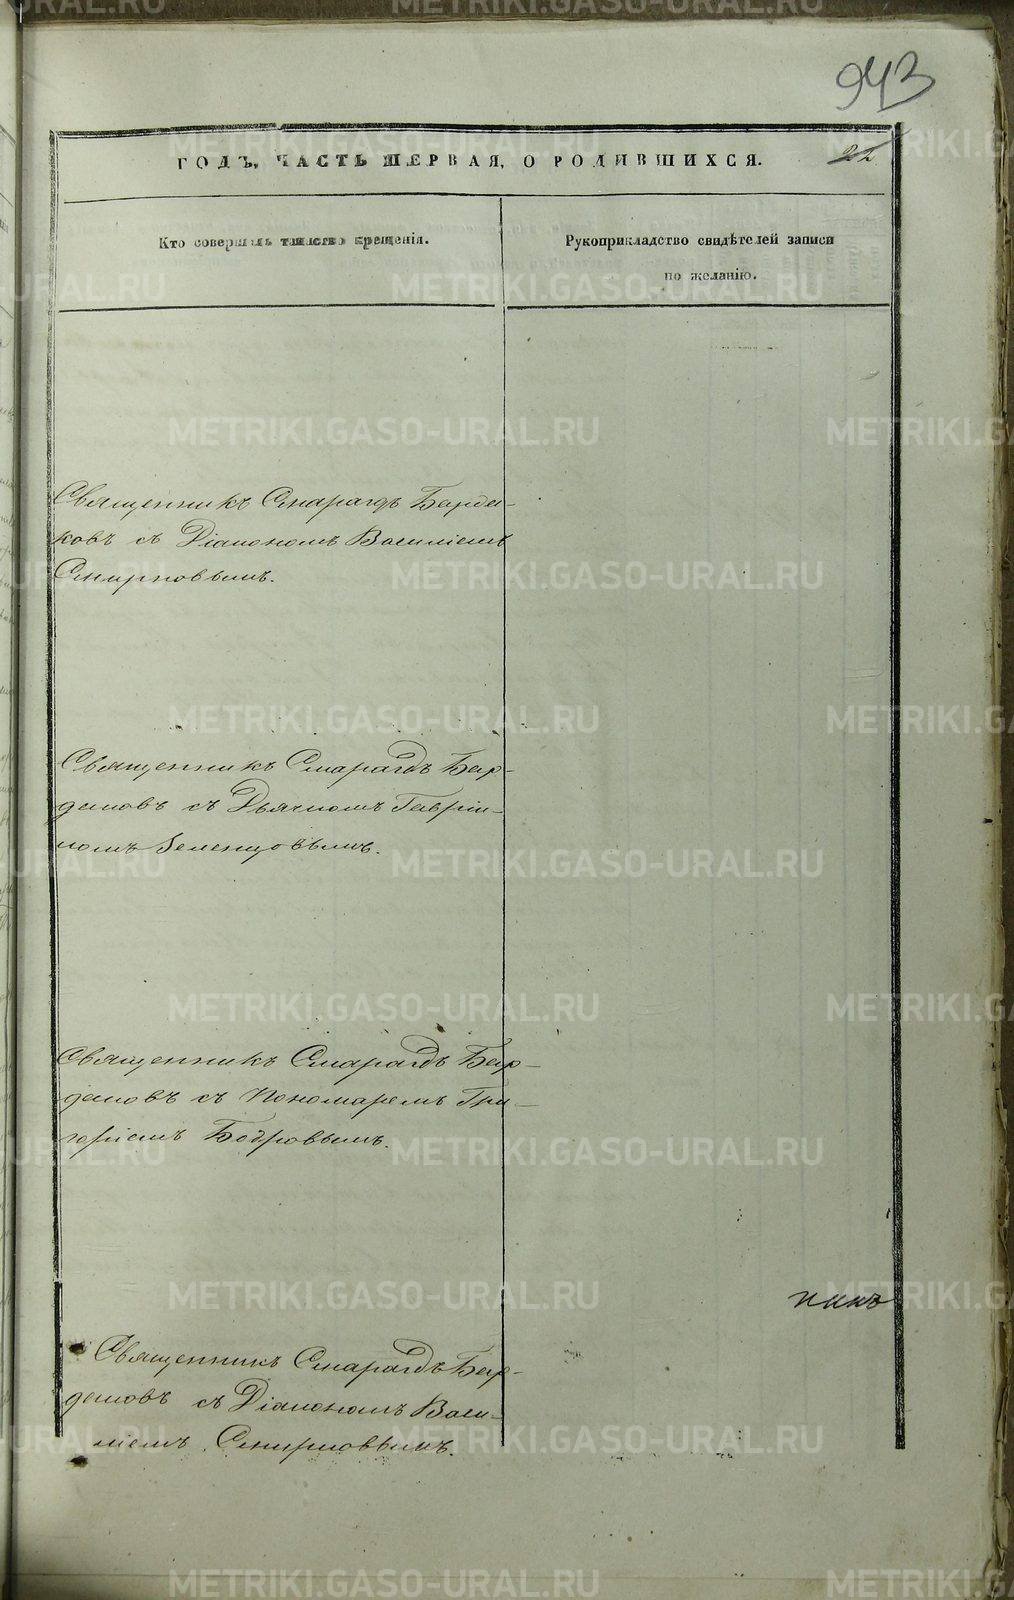 943
ГОДЪ, ЧАСТЬ ПЕРВАЯ, О РОДИВШИХСЯ.
22
Кто совершалъ таинство крещенія.
Рукоприкладство свидѣтелей записи
по желанію.
Священникъ Смарагдъ Барда-
ковъ съ Діакономъ Василіемъ
Смирновымъ.
Священникъ Смарагдъ Бар-
даковъ съ Дьячкомъ Гаврiи-
ломъ Зеленцовымъ.
Священникъ Смарагдъ Бар-
даковъ съ Пономаремъ Гри-
горіемъ Бобровымъ.
Священникъ Смарагдъ Бар-
даковъ съ Діакономъ Васи-
ліемъ Смирновымъ.
METRIKI.GASO-URAL.RU